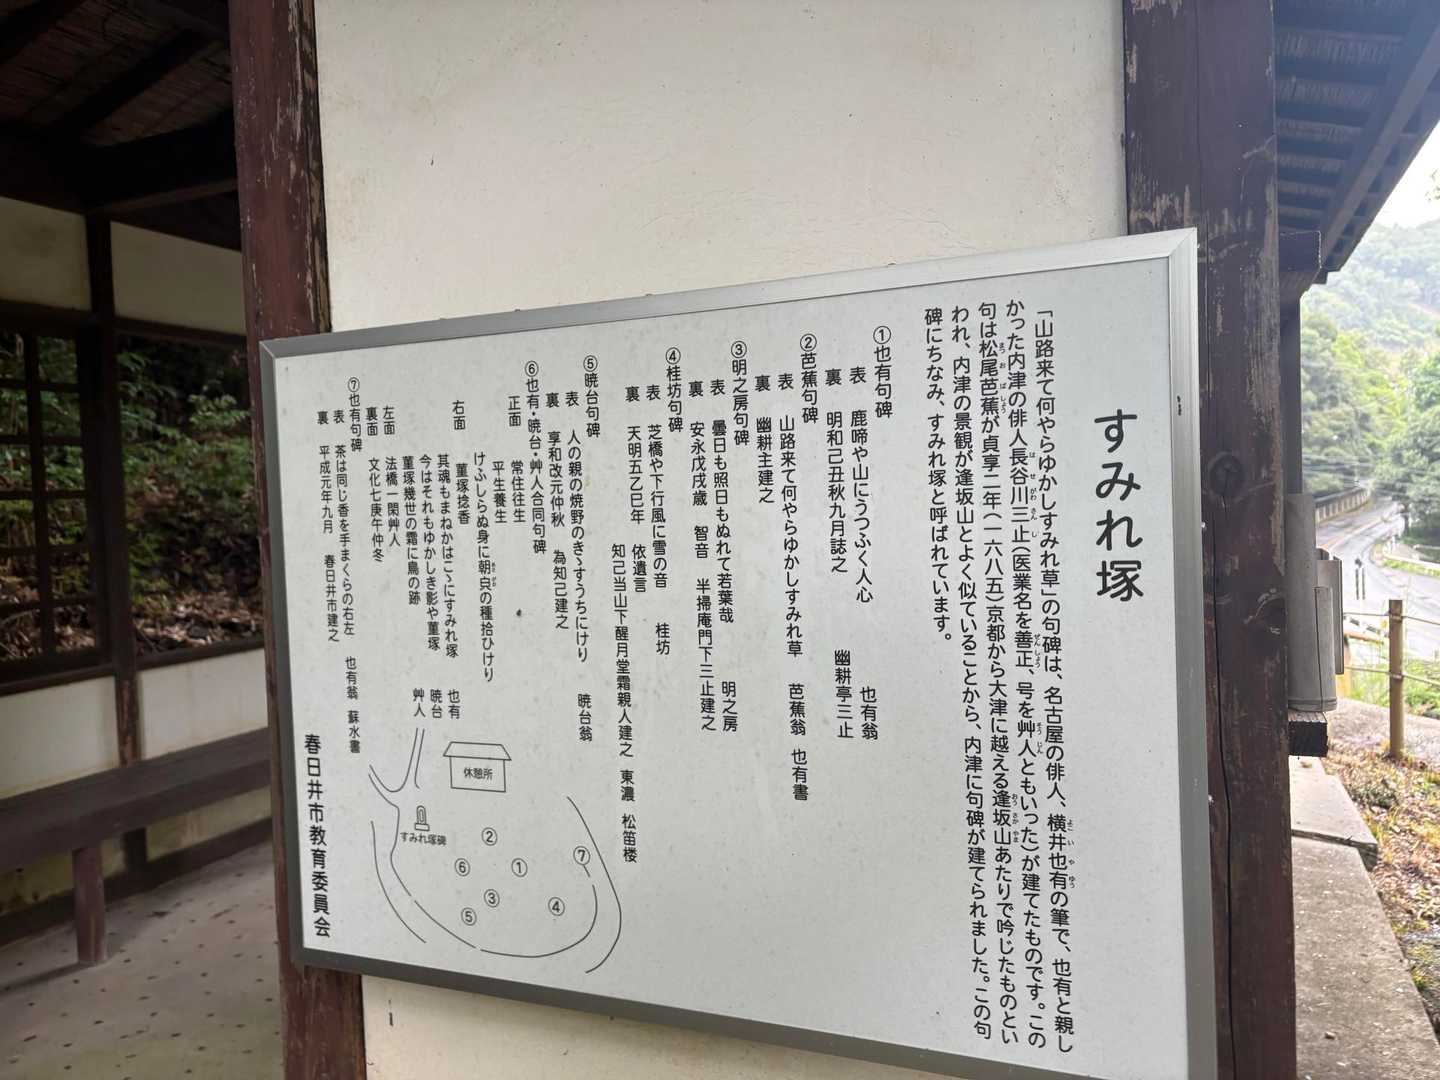 すみれ塚
「山路来て何やらゆかしすみれ草」の句碑は、名古屋の俳人、横井也有の筆で、也有と親し
かった内津の俳人長谷川三止(医業名を善正、号を艸人ともいった)が建てたものです。この
句は松尾芭蕉が貞享二年(一六八五)京都から大津に越える逢坂山あたりで吟じたものとい
われ、内津の景観が逢坂山とよく似ていることから、内津に句碑が建てられました。この句
碑にちなみ、すみれ塚と呼ばれています。
①也有句碑
表 鹿啼や山にうつふく人心 也有翁
裏 明和己丑秋九月誌之 幽耕亭三止
②芭蕉句碑
表 山路来て何やらゆかしすみれ草 芭蕉翁 也有書
裏 幽耕主建之
③明之房句碑
表 曇日も照日もぬれて若葉哉 明之房
裏 安永戊戌歳 智音 半掃庵門下三止建之
④桂坊句碑
表 芝橋や下行風に雪の音 桂坊
裏 天明五乙巳年 依遺言
知己当山下醒月堂霜親人建之 東濃 松笛楼
⑤暁台句碑
表 人の親の焼野のきゞすうちにけり 暁台翁
裏 享和改元仲秋 為知己建之
⑥也有・暁台・艸人合同句碑
正面 常住往生
平生養生
けふしらぬ身に朝㒵の種拾ひけり
右面 菫塚捻香
其魂もまねかはこゝにすみれ塚 也有
今はそれもゆかしき影や菫塚 暁台
菫塚幾世の霜に鳥の跡 艸人
左面 法橋一閑艸人
裏面 文化七庚午仲冬
⑦也有句碑
表 茶は同じ香を手まくらの右左 也有翁 蘇水書
裏 平成元年九月 春日井市建之
春日井市教育委員会
休憩所
すみれ塚碑
②
⑥
①
⑦
③
⑤
④